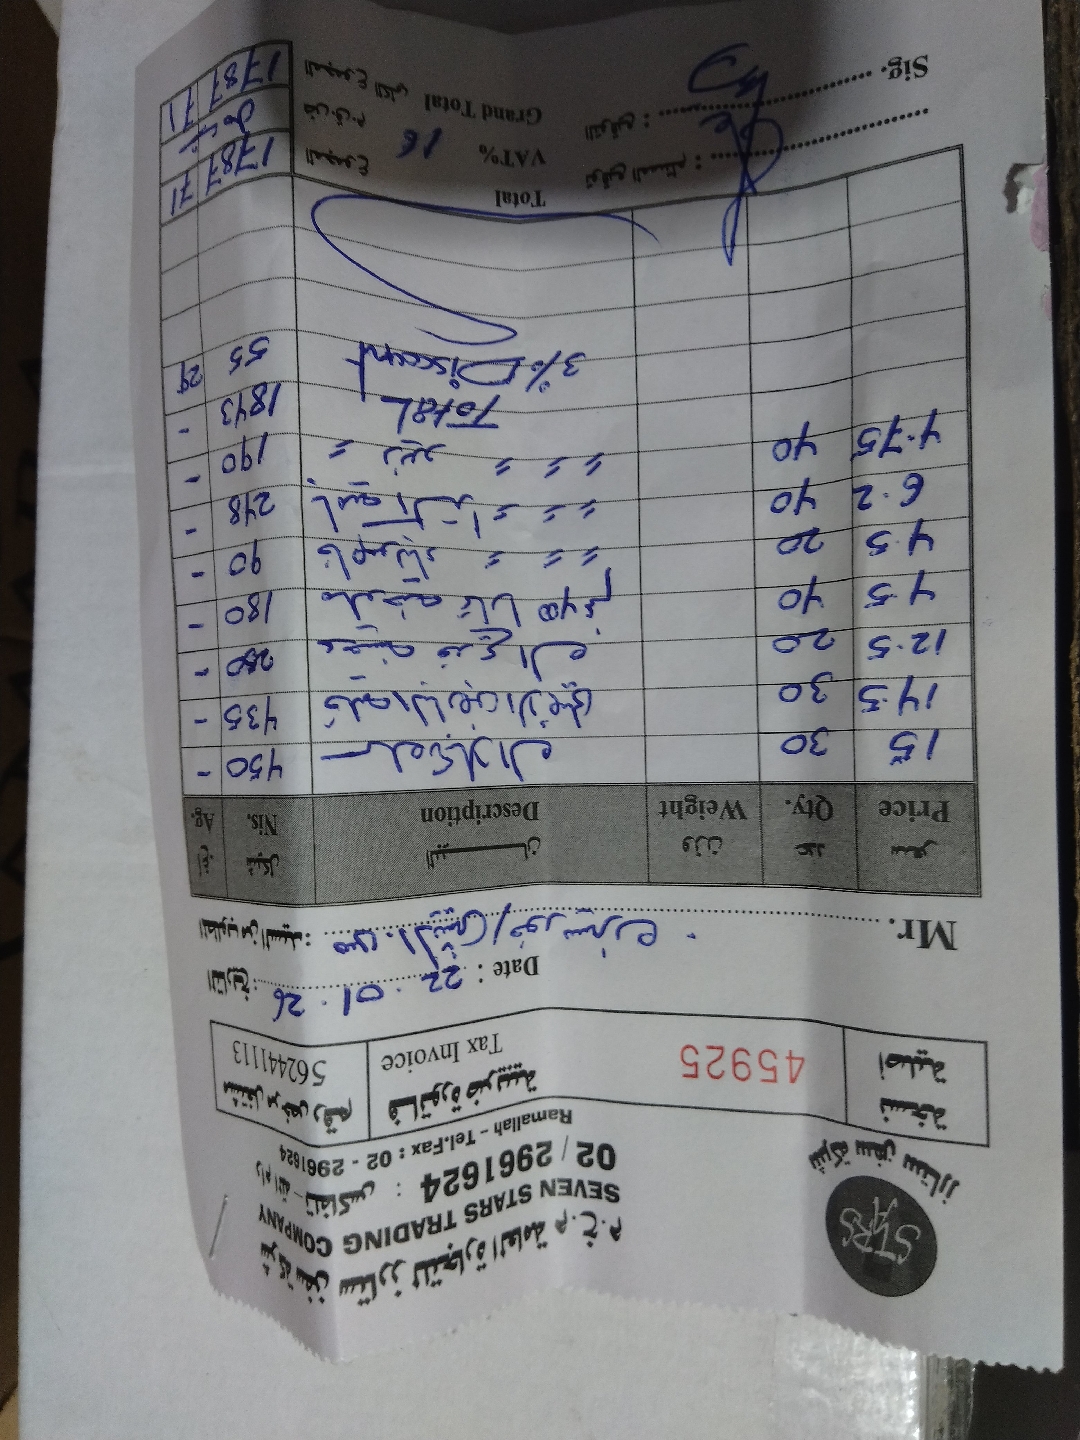 شركة سفن ستارز للتجارة العامة م.خ.م
SEVEN STARS TRADING COMPANY
02 / 2961624 : رام الله - تلفاكس
Ramallah - Tel.Fax : 02 - 2961624
شركة سفن ستارز
STRS
نسخة أصلية
45925
فاتورة ضريبية
Tax Invoice
رقم مشتغل مرخص
56241113
Date : 22.01.26 : التاريخ
Mr. : المطلوب من السيد
سعر عدد وزن البيـــــــان شيكل اغ.
Price Qty. Weight Description Nis. Ag.
15 30 450 -
14.5 30 435 -
12.5 20 250 -
4.5 40 180 -
4.5 20 〃 〃 〃 90 -
6.2 40 〃 〃 〃 248 -
4.75 40 〃 〃 〃 〃 190 -
Total 1843 -
3% Discount 55 29
Total المجموع 1787 71
VAT% 16 ض.ق.م
Grand Total المجموع الكلي 1787 71
توقيع المستلم :
Sig. : التوقيع